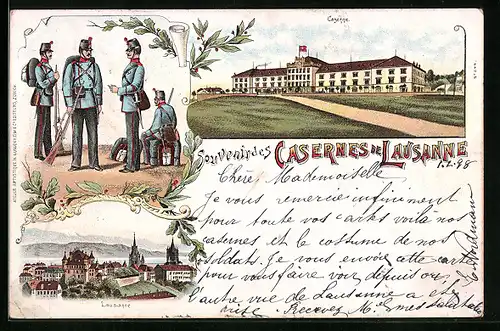 Caserne
Souvenir des CASERNES DE LAUSANNE
1.2.98
Chère Mademoiselle
Je vous remercie infiniment
pour toute vos cartes voila nos
casernes et le costume de nos
soldats. Je vous envoie cette carte
pour vous faire voir depuis ou
l'autre vue de Lausanne a été
prise. Recevez M. mes salutat.
LAUSANNE